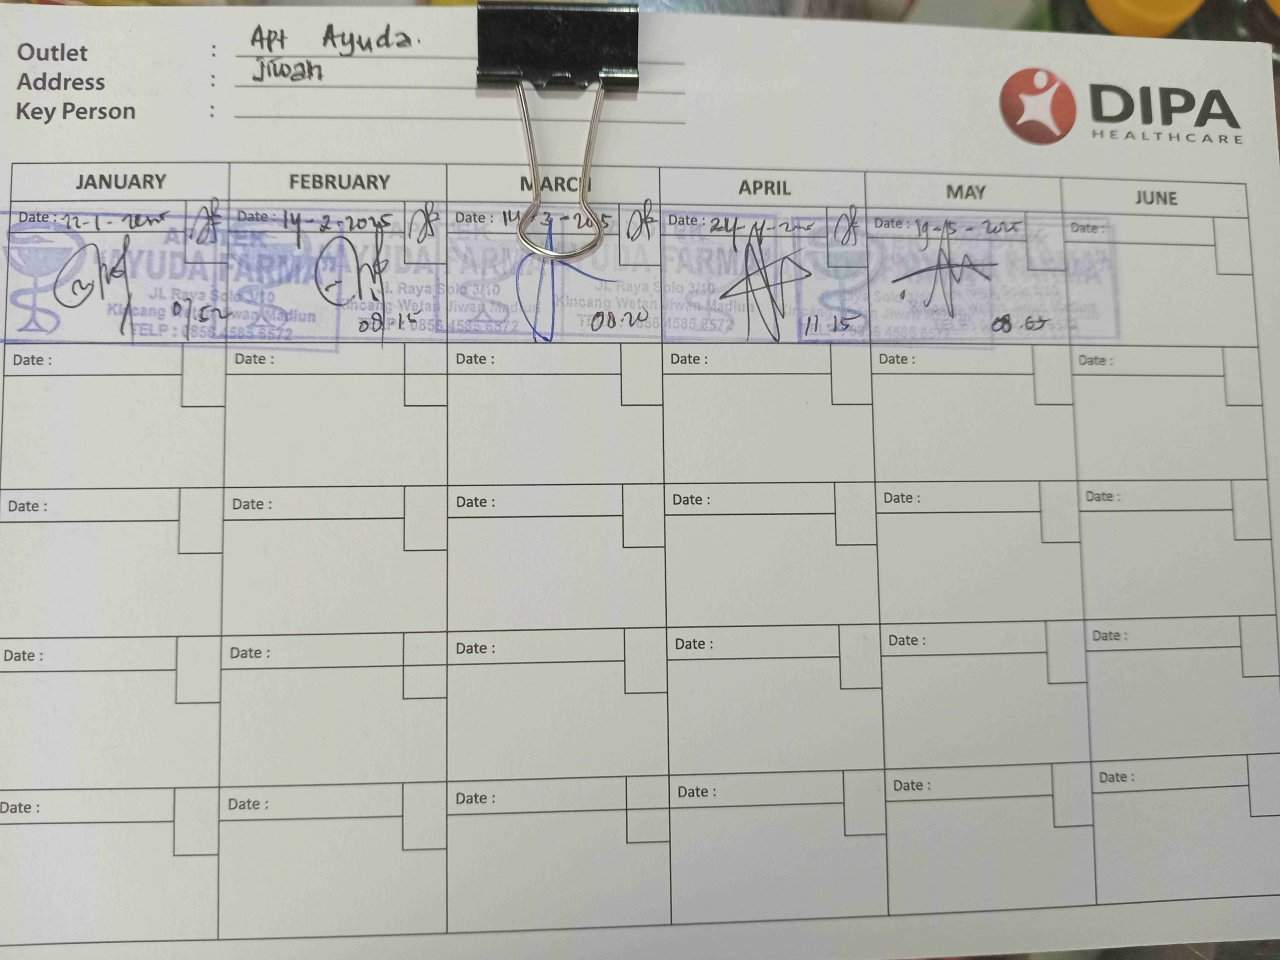 Outlet : Apt Ayuda.
Address : Jiwan
Key Person :
DIPA
HEALTHCARE
JANUARY FEBRUARY MARCH APRIL MAY JUNE
Date : 22-1-2025 Date : 14-2-2025 Date : 14-3-2025 Date : 24-4-2025 Date : 19-5-2025 Date :
APOTEK
AYUDA FARMA AYUDA FARMA AYUDA FARMA
JL Raya Solo 3/10 JL Raya Solo 3/10 JL Raya Solo 3/10
Kincang Wetan Jiwan Madiun Kincang Wetan Jiwan Madiun
TELP : 0856 4585 6572
07.52 08.15 08.20 11.15
Date : Date : Date : Date : Date : Date :
Date : Date : Date : Date : Date : Date :
Date : Date : Date : Date : Date : Date :
Date : Date : Date : Date : Date : Date :